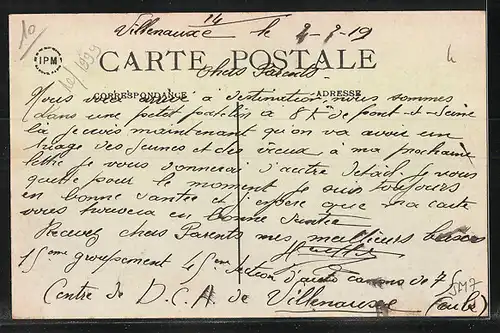 10 14
Villenauxe le 2-2-19
IPM
CARTE POSTALE
Chers Parents
CORRESPONDANCE ADRESSE
Nous à destination, nous sommes
dans une petit à 8 K de pont-s-Seine
là je crois maintenant qu'on va avoir un
triage des jeunes et des vieux à ma prochaine
lettre je vous donnerai d'autre détail. Je vous
quitte pour le moment je suis toujours
en bonne santée et j'espère que ma carte
vous trouvera en bonne santée
Recevez chers Parents mes meilleurs baisers
15eme groupement 45eme section d'auto canons de 75
Centre de D.C.A de Villenauxe (aube)